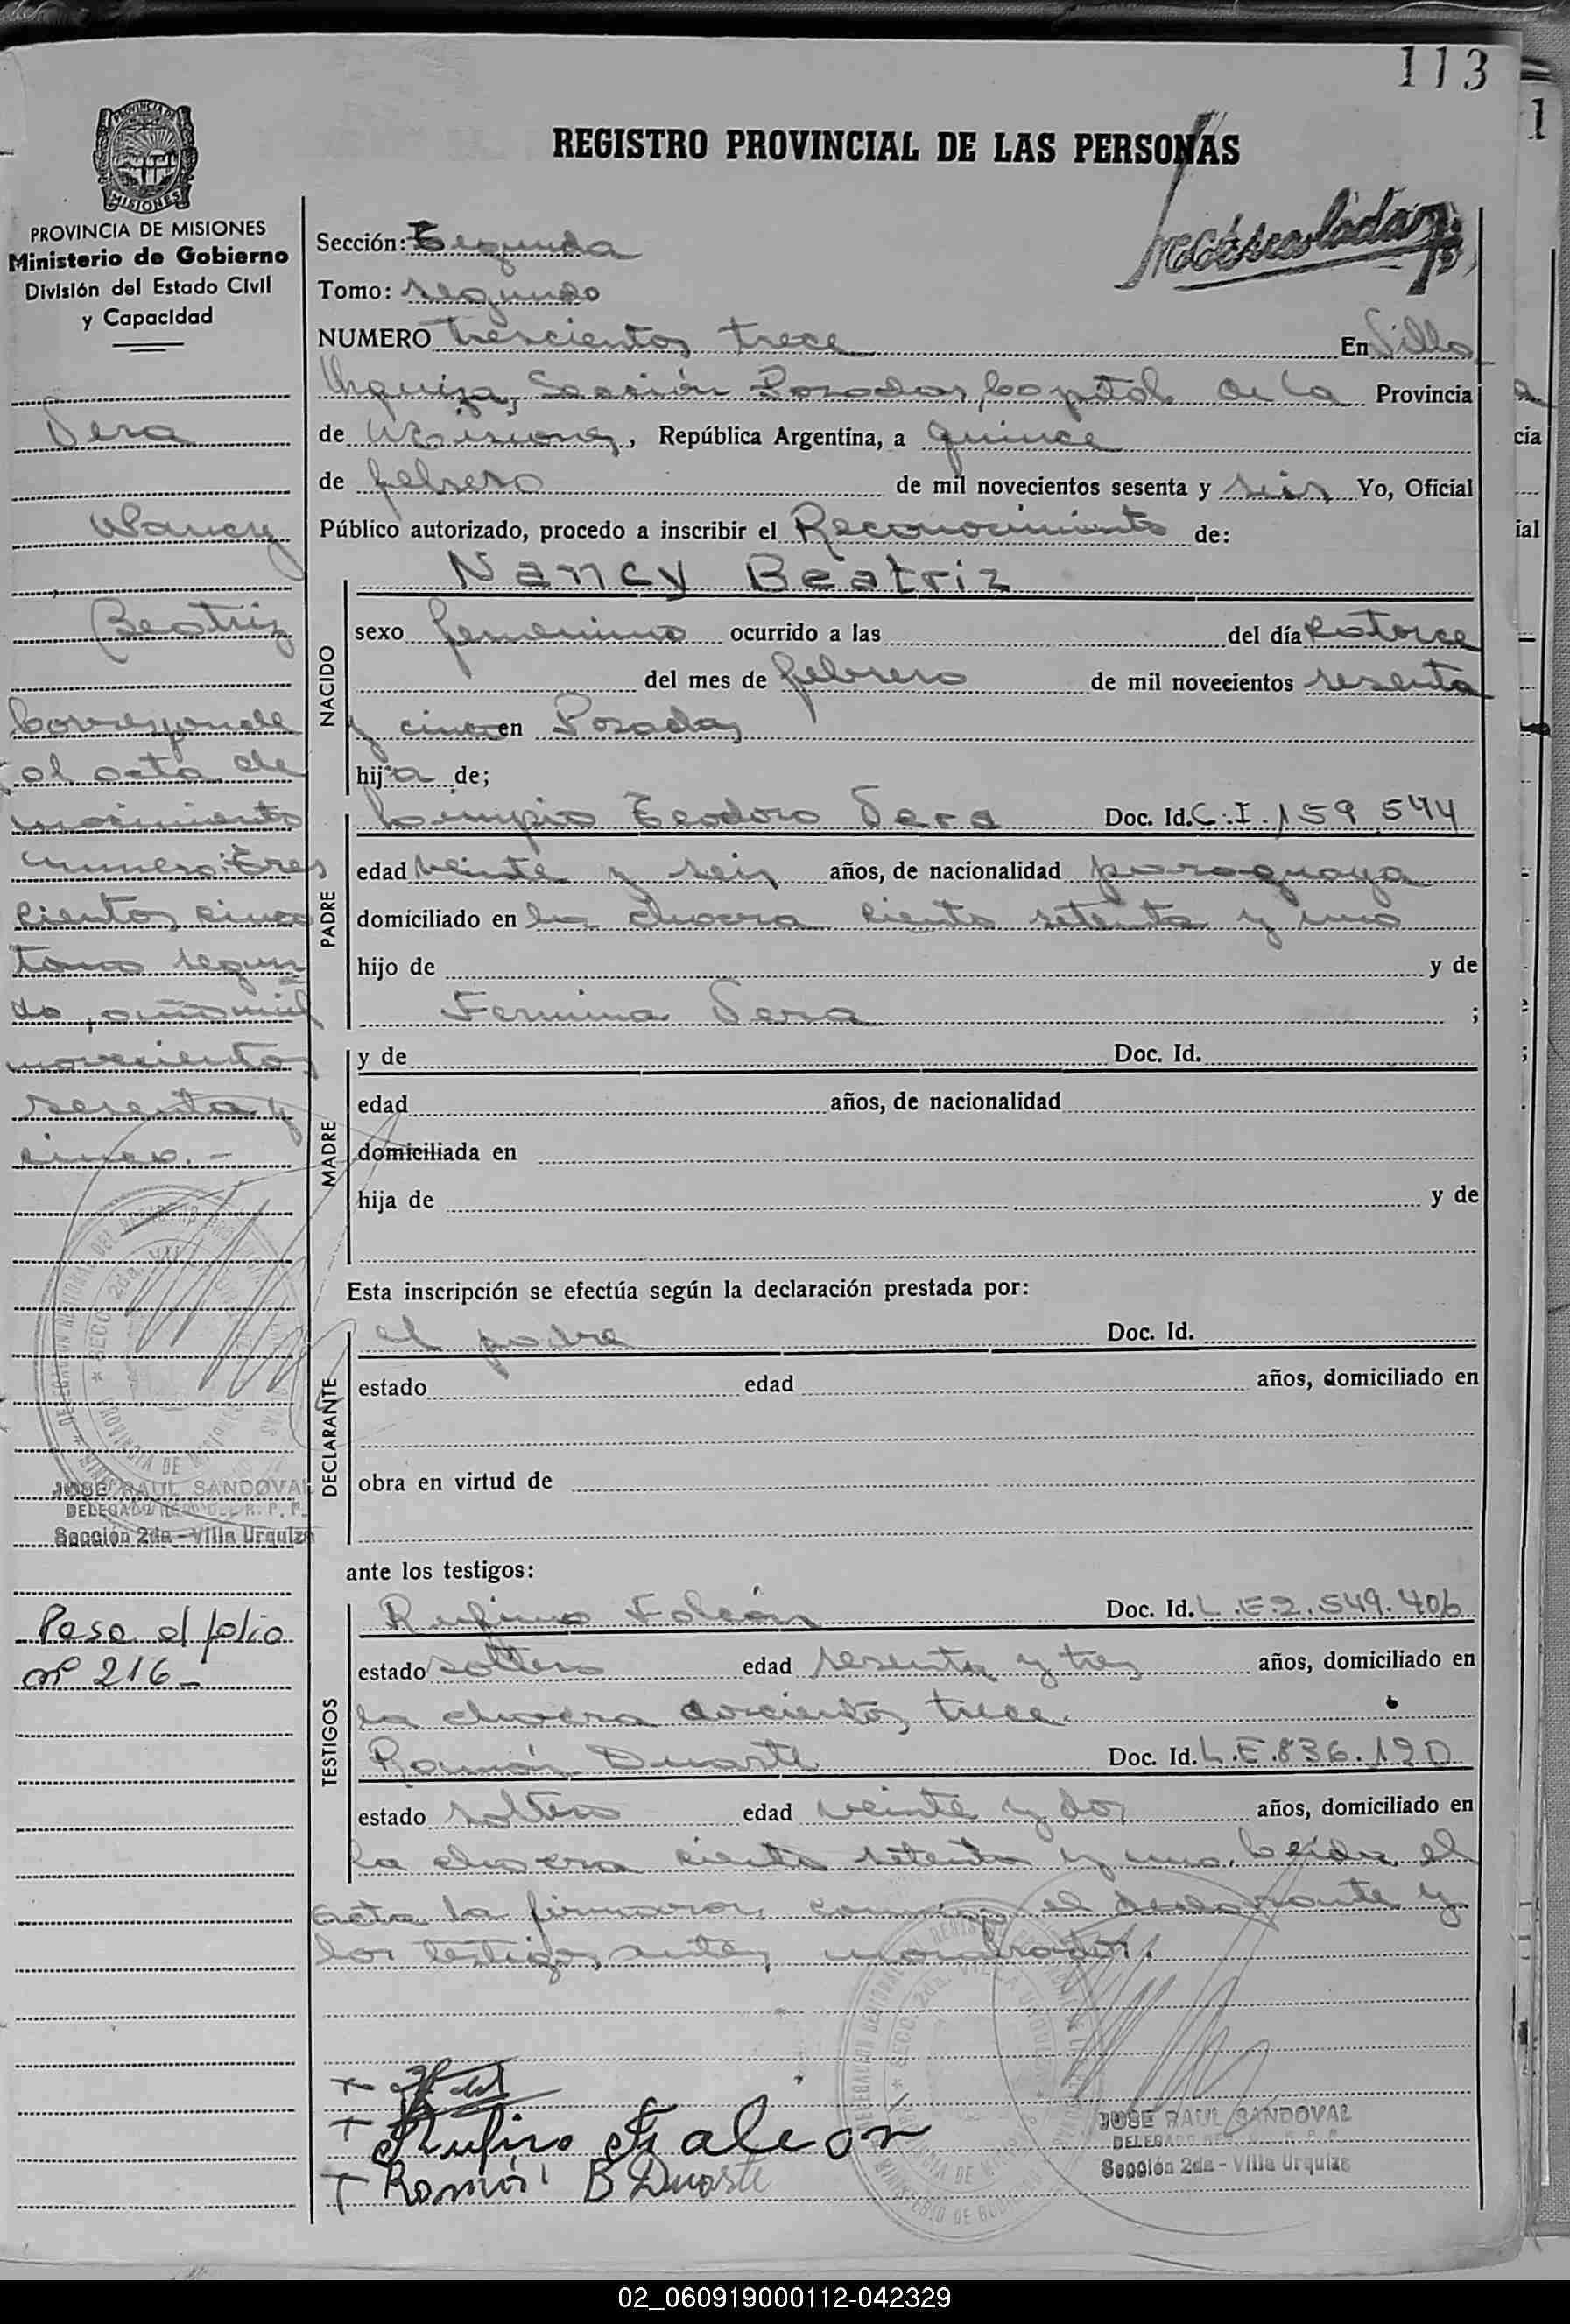 113
REGISTRO PROVINCIAL DE LAS PERSONAS
MISIONES
PROVINCIA DE MISIONES
Ministerio de Gobierno
División del Estado Civil
y Capacidad
Vera
Nancy
Beatriz
Corresponde
al acta de
nacimiento
numero: tres
cientos cinco
tomo segun
do, año mil
novecientos
sesenta y
cinco.-
JOSE RAUL SANDOVAL
Sección 2da - Villa Urquiza
Pase al folio
nº 216-
Sección: Segunda
Tomo: segundo
NUMERO trescientos trece En Villa
Urquiza, Sección Posadas, Capital de la Provincia
de Misiones, República Argentina, a quince
de febrero de mil novecientos sesenta y seis Yo, Oficial
Público autorizado, procedo a inscribir el Reconocimiento de:
NACIDO
Nancy Beatriz
sexo femenino ocurrido a las del día catorce
del mes de febrero de mil novecientos sesenta
y cinco en Posadas
hija de;
PADRE
Limpio Teodoro Vera Doc. Id. C.I. 159 544
edad veinte y seis años, de nacionalidad paraguaya
domiciliado en la chacra ciento setenta y uno
hijo de y de
Fermina Vera ;
MADRE
y de Doc. Id.
edad años, de nacionalidad
domiciliada en
hija de y de
Esta inscripción se efectúa según la declaración prestada por:
DECLARANTE
el padre Doc. Id.
estado edad años, domiciliado en
obra en virtud de
ante los testigos:
TESTIGOS
Rufino Falcón Doc. Id. L.E 2.549.406
estado soltero edad sesenta y tres años, domiciliado en
la chacra doscientos trece.
Ramón Duarte Doc. Id. L.E. 836.190
estado soltero edad veinte y dos años, domiciliado en
la chacra ciento setenta y uno. Leída el
acta la firmaron conmigo el declarante y
los testigos antes nombrados.
Rufino Falcon
Ramón B Duarte
JOSE RAUL SANDOVAL
Sección 2da - Villa Urquiza
02_060919000112-042329